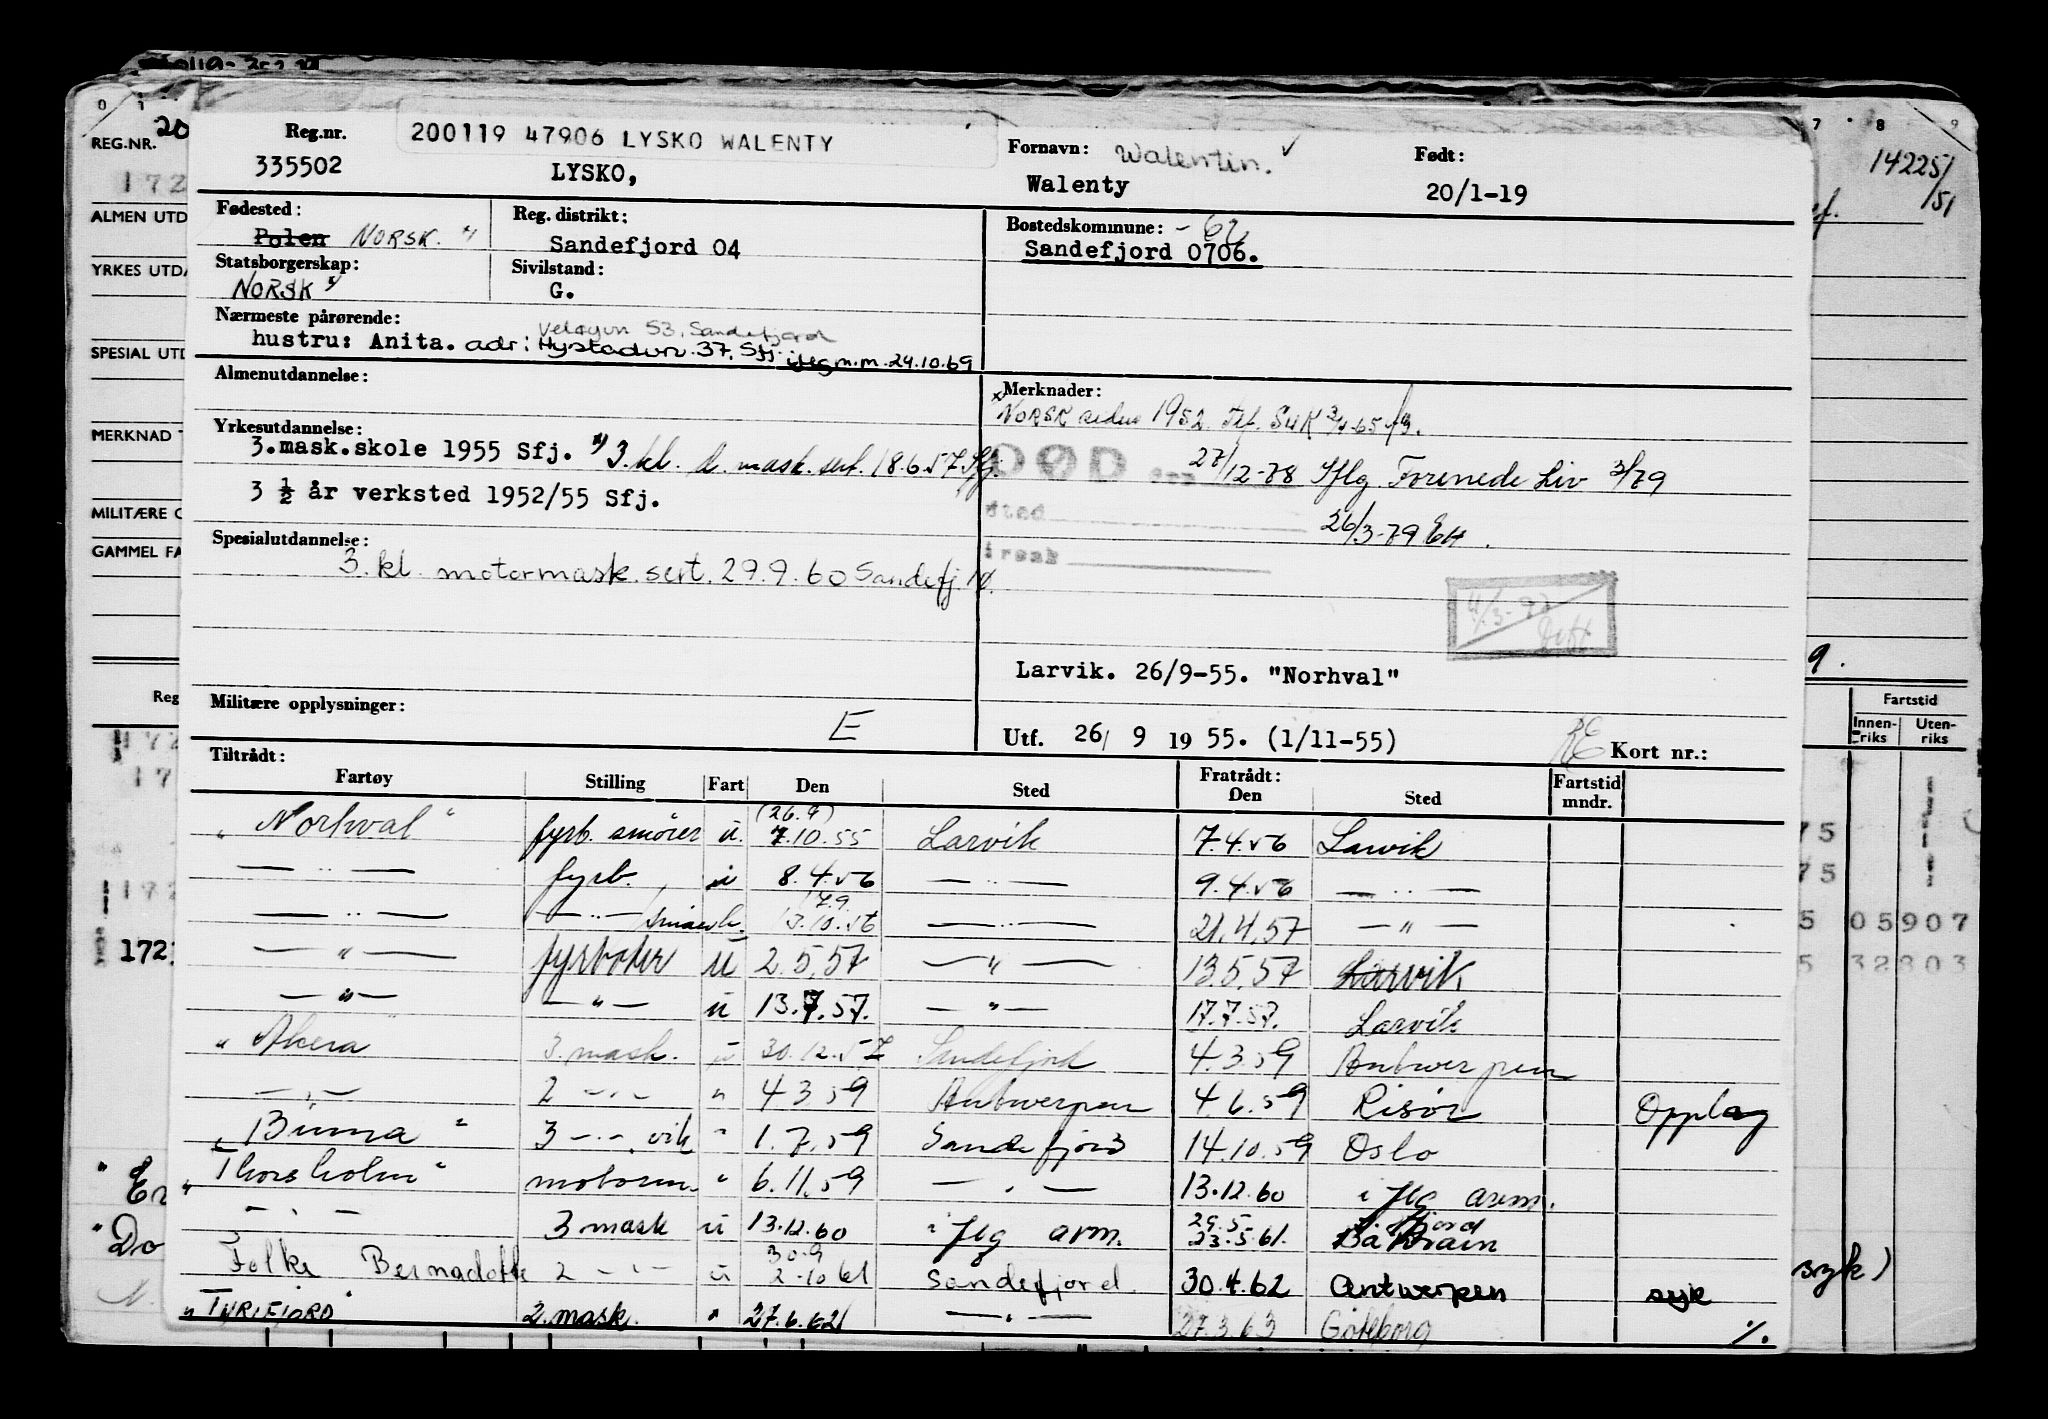 REG.NR. 20
172
ALMEN UTD
YRKES UTDA
SPECIAL UTD
MERKNAD
MILITÆRE
GAMMEL FA
Reg
1721
Reg.nr. 200119 47906 LYSKO WALENTY Fornavn: Walentin. Født:
335502 LYSKO, Walenty 20/1-19
Fødested: Reg. distrikt: Bostedskommune: - 62
Polen NORSK. Sandefjord 04 Sandefjord 0706.
Statsborgerskap: Sivilstand:
NORSK G.
Nærmeste pårørende: 53, Sandefjord
hustru: Anita. adr: 37, Sfj. m.m. 24.10.69
Almenutdannelse: Merknader:
NORSK siden 1952
Yrkesutdannelse:
3.mask.skole 1955 Sfj. 3.kl. d. mask.sert. 18.6.57 Sfj.
DØD den 27/12-78 Iflg Forenede Liv 3/79
3 ½ år verksted 1952/55 Sfj.
sted 26/3-79 EH.
Spesialutdannelse: årsak
3. kl. motormask. sert. 29.9.60 Sandefj.
Larvik. 26/9-55. "Norhval"
Militære opplysninger: E Utf. 26/ 9 19 55. (1/11-55) Kort nr.:
Tiltrådt: Fratrådt: Fartstid
Fartøy Stilling Fart Den Sted Den Sted mndr.
(26.9)
"Norhval" fyrb. smører u. 7.10.55 Larvik 7.4.56 Larvik
— " — fyrb. u 8.4.56 — " — 9.4.56 — " —
17.9
— " — — " — 13.10.56 — " — 21.4.57 — " —
— " — fyrbøter u 2.5.57 — " — 13.5.57 Larvik
— " — — " — u 13.7.57. — " — 17.7.57. Larvik
"Akera 3 mask. u 30.12.57 Sandefjord 4.3.59 Antwerpen
— " — 2 — " — " 4 3 59 Antwerpen 4.6.59 Risør Opplag
"Binna" 3 — " — vik " 1.7.59 Sandefjord 14.10.59 Oslo
"Thorsholm" motorm. " 6.11.59 — " — 13.12.60 iflg arm.
29.5
— " — 3 mask u 13.12.60 iflg arm. 23.5.61.
30.9
Folke Bernadotte 2 — " — u 2.10 61 Sandefjord 30.4.62 Antwerpen syk
"TYRIFJORD" 2. mask. " 27.6.62 — " — 27.3.63 Göteborg ./.
7 8 9
14225/
151
9.
Fartstid
Innen-riks Uten-riks
75
75
5 05907
5 32803
syk)